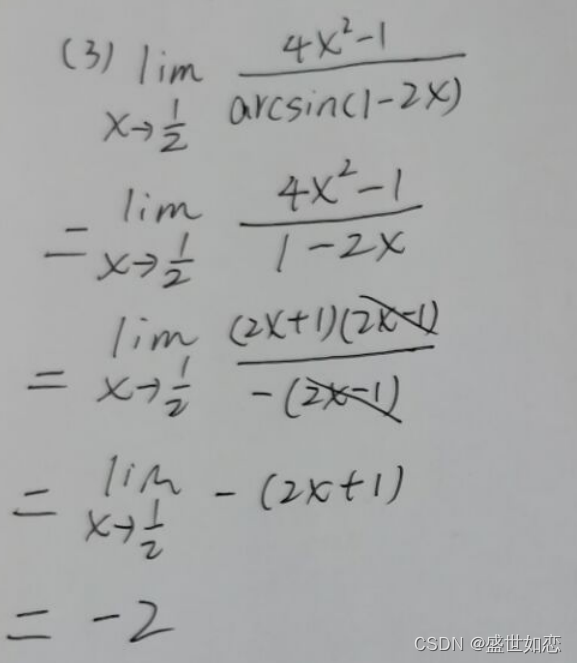 (3) lim x→1/2 (4x²-1)/(arcsin(1-2x))
= lim x→1/2 (4x²-1)/(1-2x)
= lim x→1/2 ((2x+1)(2x-1))/(-(2x-1))
= lim x→1/2 -(2x+1)
= -2
CSDN @盛世如恋